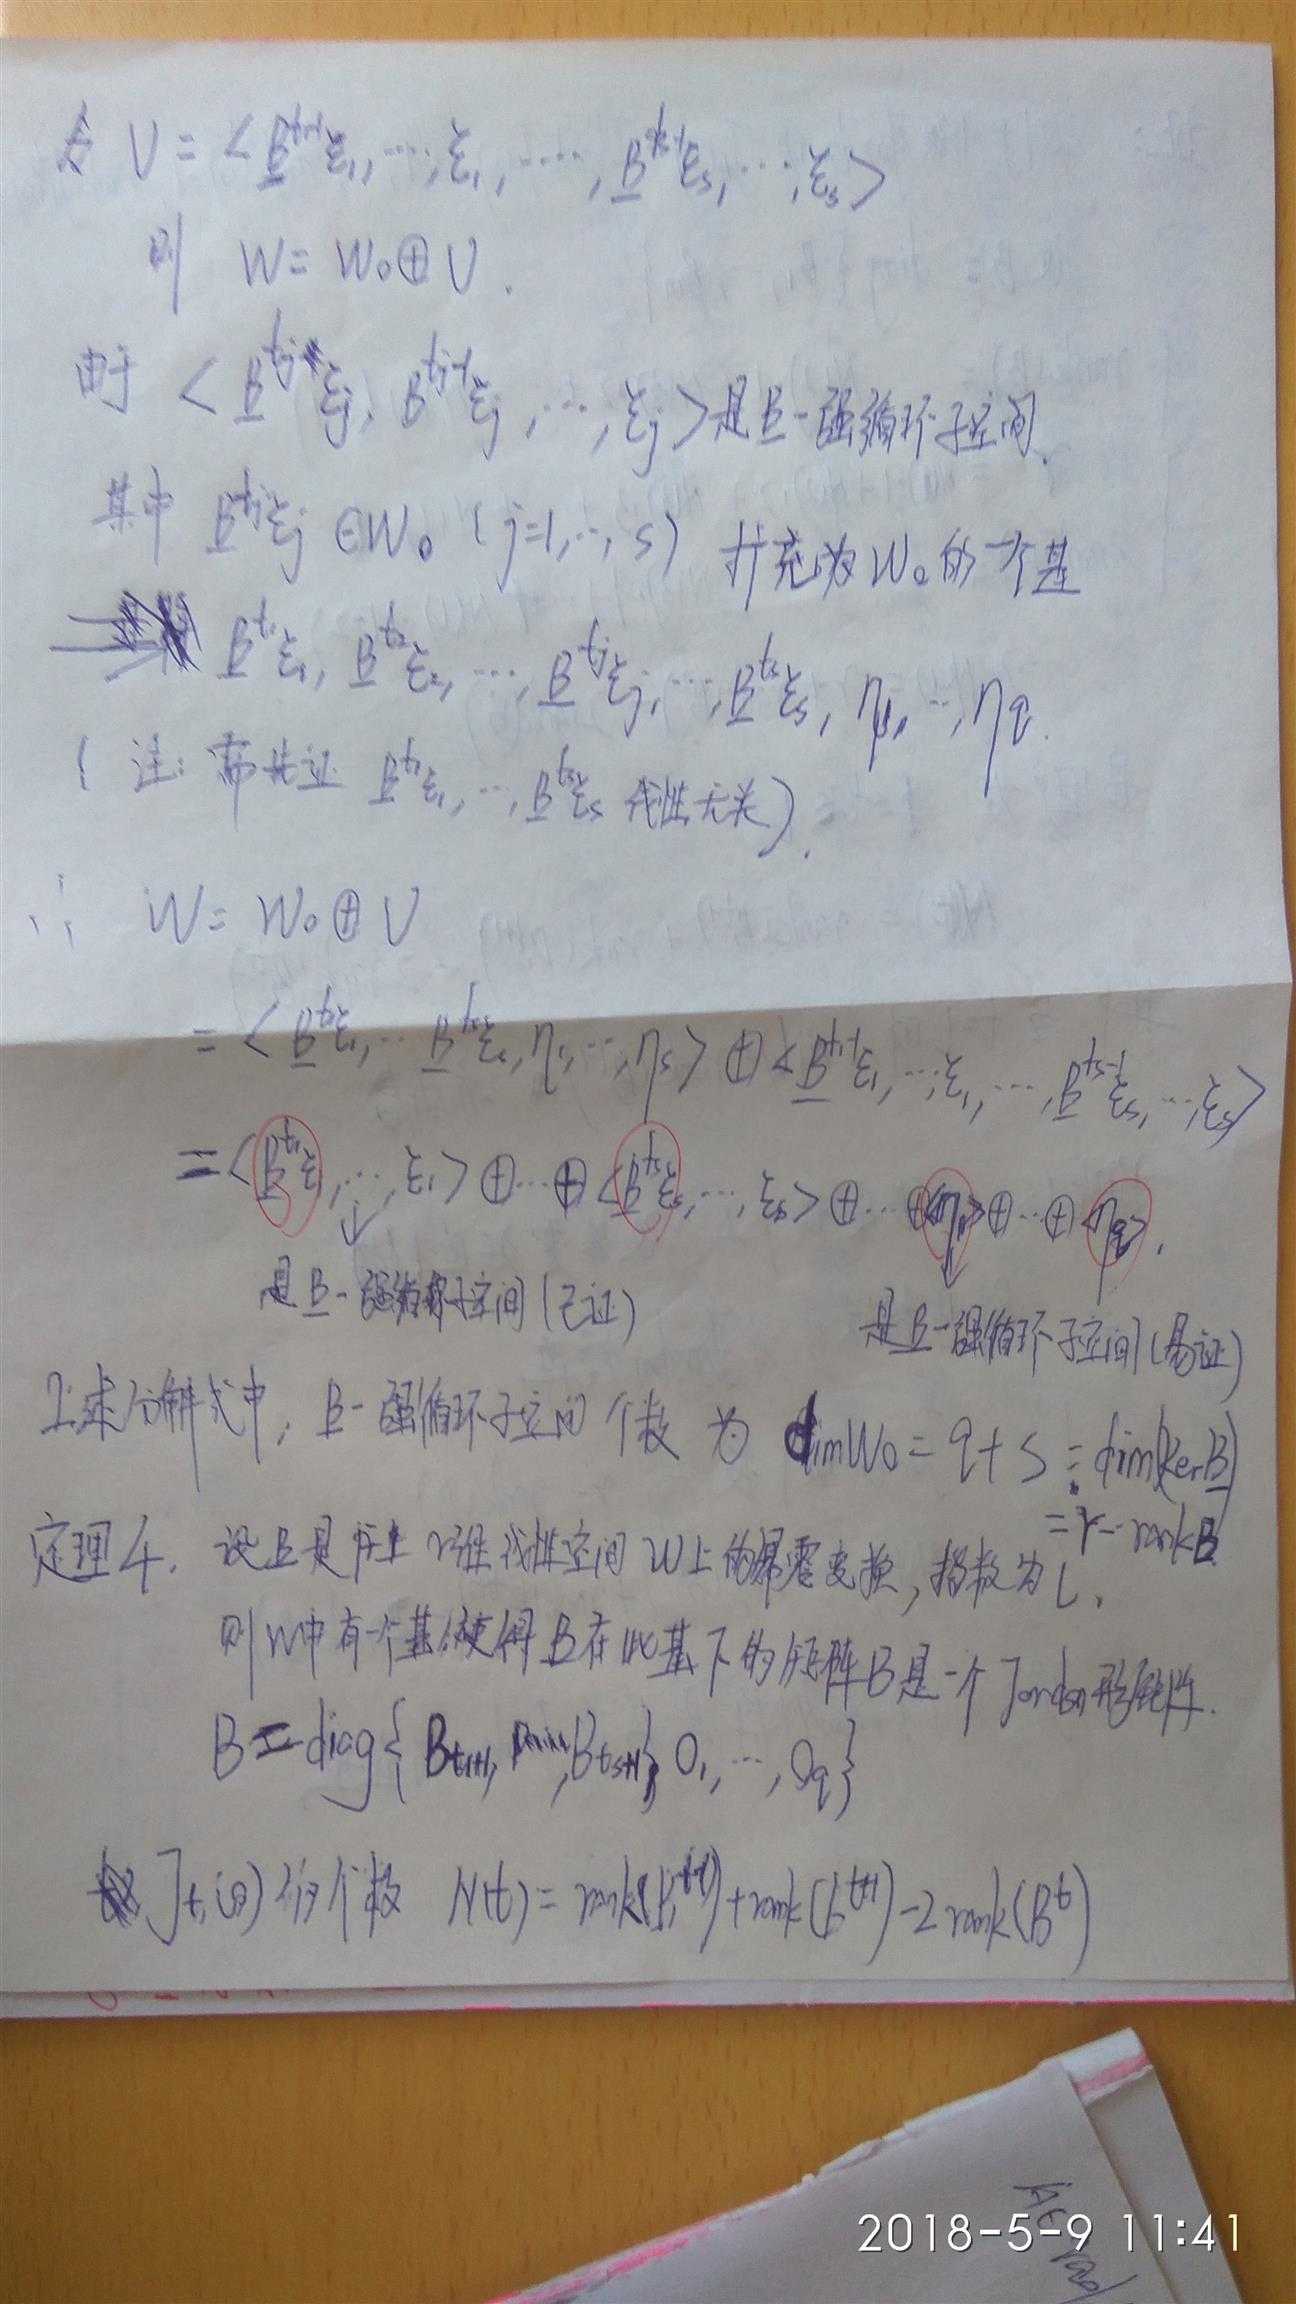 令 U = < B^{t₁-1}ξ₁, ⋯, ξ₁, ⋯⋯, B^{tₛ-1}ξₛ, ⋯, ξₛ >
则 W = W₀ ⊕ U.
由于 < B^{tⱼ}ξⱼ, B^{tⱼ-1}ξⱼ, ⋯, ξⱼ > 是B-强循环子空间.
其中 B^{tⱼ}ξⱼ ∈ W₀ (j=1,⋯,s) 扩充为W₀的一个基
B^{t₁}ξ₁, B^{t₂}ξ₂, ⋯, B^{tⱼ}ξⱼ, ⋯, B^{tₛ}ξₛ, η₁, ⋯, η_q.
(注: 需先证 B^{t₁}ξ₁, ⋯, B^{tₛ}ξₛ 线性无关).
∴ W = W₀ ⊕ U
= < B^{t₁}ξ₁, ⋯ B^{tₛ}ξₛ, η₁, ⋯, ηₛ > ⊕ < B^{t₁-1}ξ₁, ⋯, ξ₁, ⋯, B^{tₛ-1}ξₛ, ⋯, ξₛ >
= < B^{t₁}ξ₁, ⋯, ξ₁ > ⊕ ⋯ ⊕ < B^{tₛ}ξₛ, ⋯, ξₛ > ⊕ ⋯ ⊕ <η₁> ⊕ ⋯ ⊕ <η_q>.
是B-强循环子空间(已证)
是B-强循环子空间(易证)
上述分解式中, B-强循环子空间个数为 dimW₀ = q + s = dim(Ker B)
= r - rankB
定理4. 设B是F上r维线性空间W上的幂零变换, 指数为l,
则W中有一个基使得B在此基下的矩阵B是一个Jordan形矩阵.
B = diag{ B_{t₁+1}, ⋯, B_{tₛ+1}, 0₁, ⋯, 0_q }
J_t(0)的个数 N(t) = rank(B^{t-1}) + rank(B^{t+1}) - 2rank(B^t)
2018-5-9 11:41